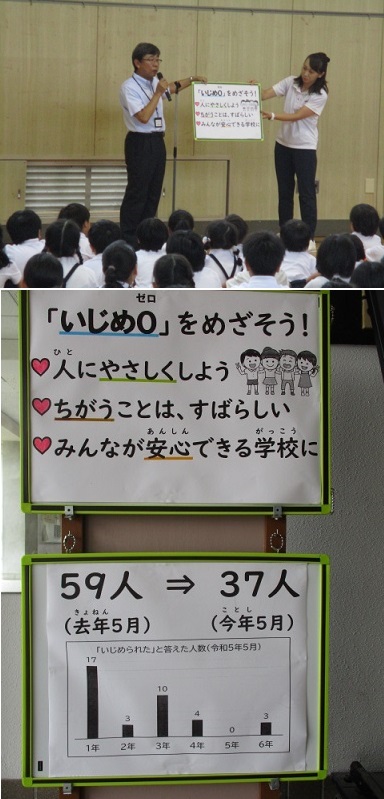 ゼロ
「いじめ0」をめざそう!
人にやさしくしよう
ちがうことは、すばらしい
みんなが安心できる学校に
ゼロ
「いじめ0」をめざそう!
ひと
人にやさしくしよう
ちがうことは、すばらしい
あんしん がっこう
みんなが安心できる学校に
59人 ⇒ 37人
きょねん ことし
(去年5月) (今年5月)
「いじめられた」と答えた人数(令和5年5月)
17 3 10 4 0 3
1年 2年 3年 4年 5年 6年